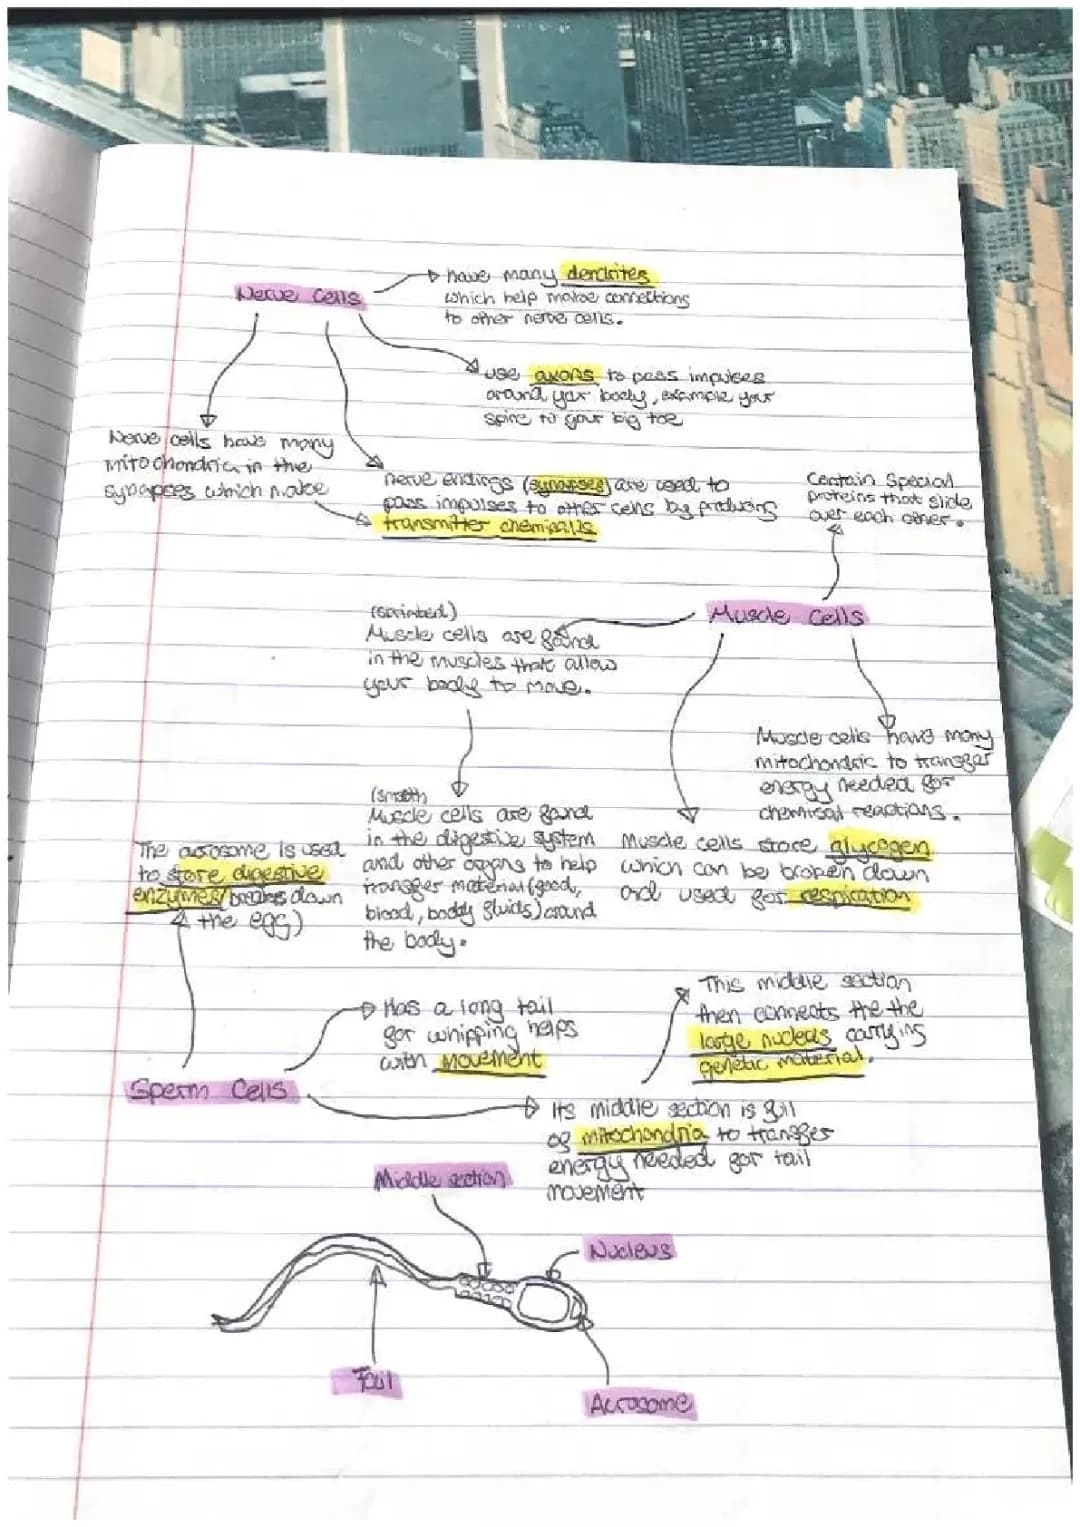 Nerve Cells
have many dendrites
which help make connections
to other nerve cells.
use axons to pass impulses
around your body, example your
spine to your big toe
Nerve cells have many
mitochondria in the
synapses which make
nerve endings (synapses) are used to
pass impulses to other cells by producing
transmitter chemicals
Contain Special
proteins that slide
over each other.
Muscle Cells
(striated)
Muscle cells are found
in the muscles that allow
your body to move.
Muscle cells have many
mitochondria to transfer
energy needed for
chemical reactions.
(smooth)
Muscle cells are found
in the digestive system
and other organs to help
transfer material (food,
blood, body fluids) around
the body.
Muscle cells store glycogen
which can be broken down
and used for respiration
The acrosome is used
to store digestive
enzymes (breaks down
the egg)
Sperm Cells
Has a long tail
for whipping helps
with movement
This middle section
then connects the the
large nucleus carrying
genetic material.
Its middle section is full
of mitochondria to transfer
energy needed for tail
movement
Middle section
Nucleus
Tail
Acrosome